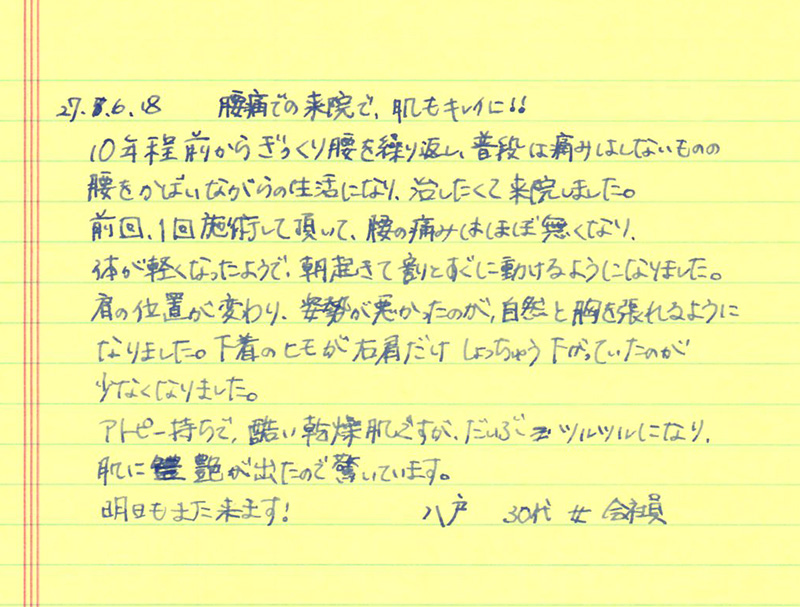 27.6.18 腰痛での来院で、肌もキレイに!!
10年程前からぎっくり腰を繰り返し、普段は痛みはしないものの
腰をかばいながらの生活になり、治したくて来院しました。
前回、1回施術して頂いて、腰の痛みはほぼ無くなり、
体が軽くなったようで、朝起きて割とすぐに動けるようになりました。
肩の位置が変わり、姿勢が悪かったのが、自然と胸を張れるように
なりました。下着のヒモが右肩だけしょっちゅう下がっていたのが
少なくなりました。
アトピー持ちで、酷い乾燥肌ですが、だいぶツルツルになり、
肌に艶が出たので驚いています。
明日もまた来ます!
八戸 30代 女 会社員